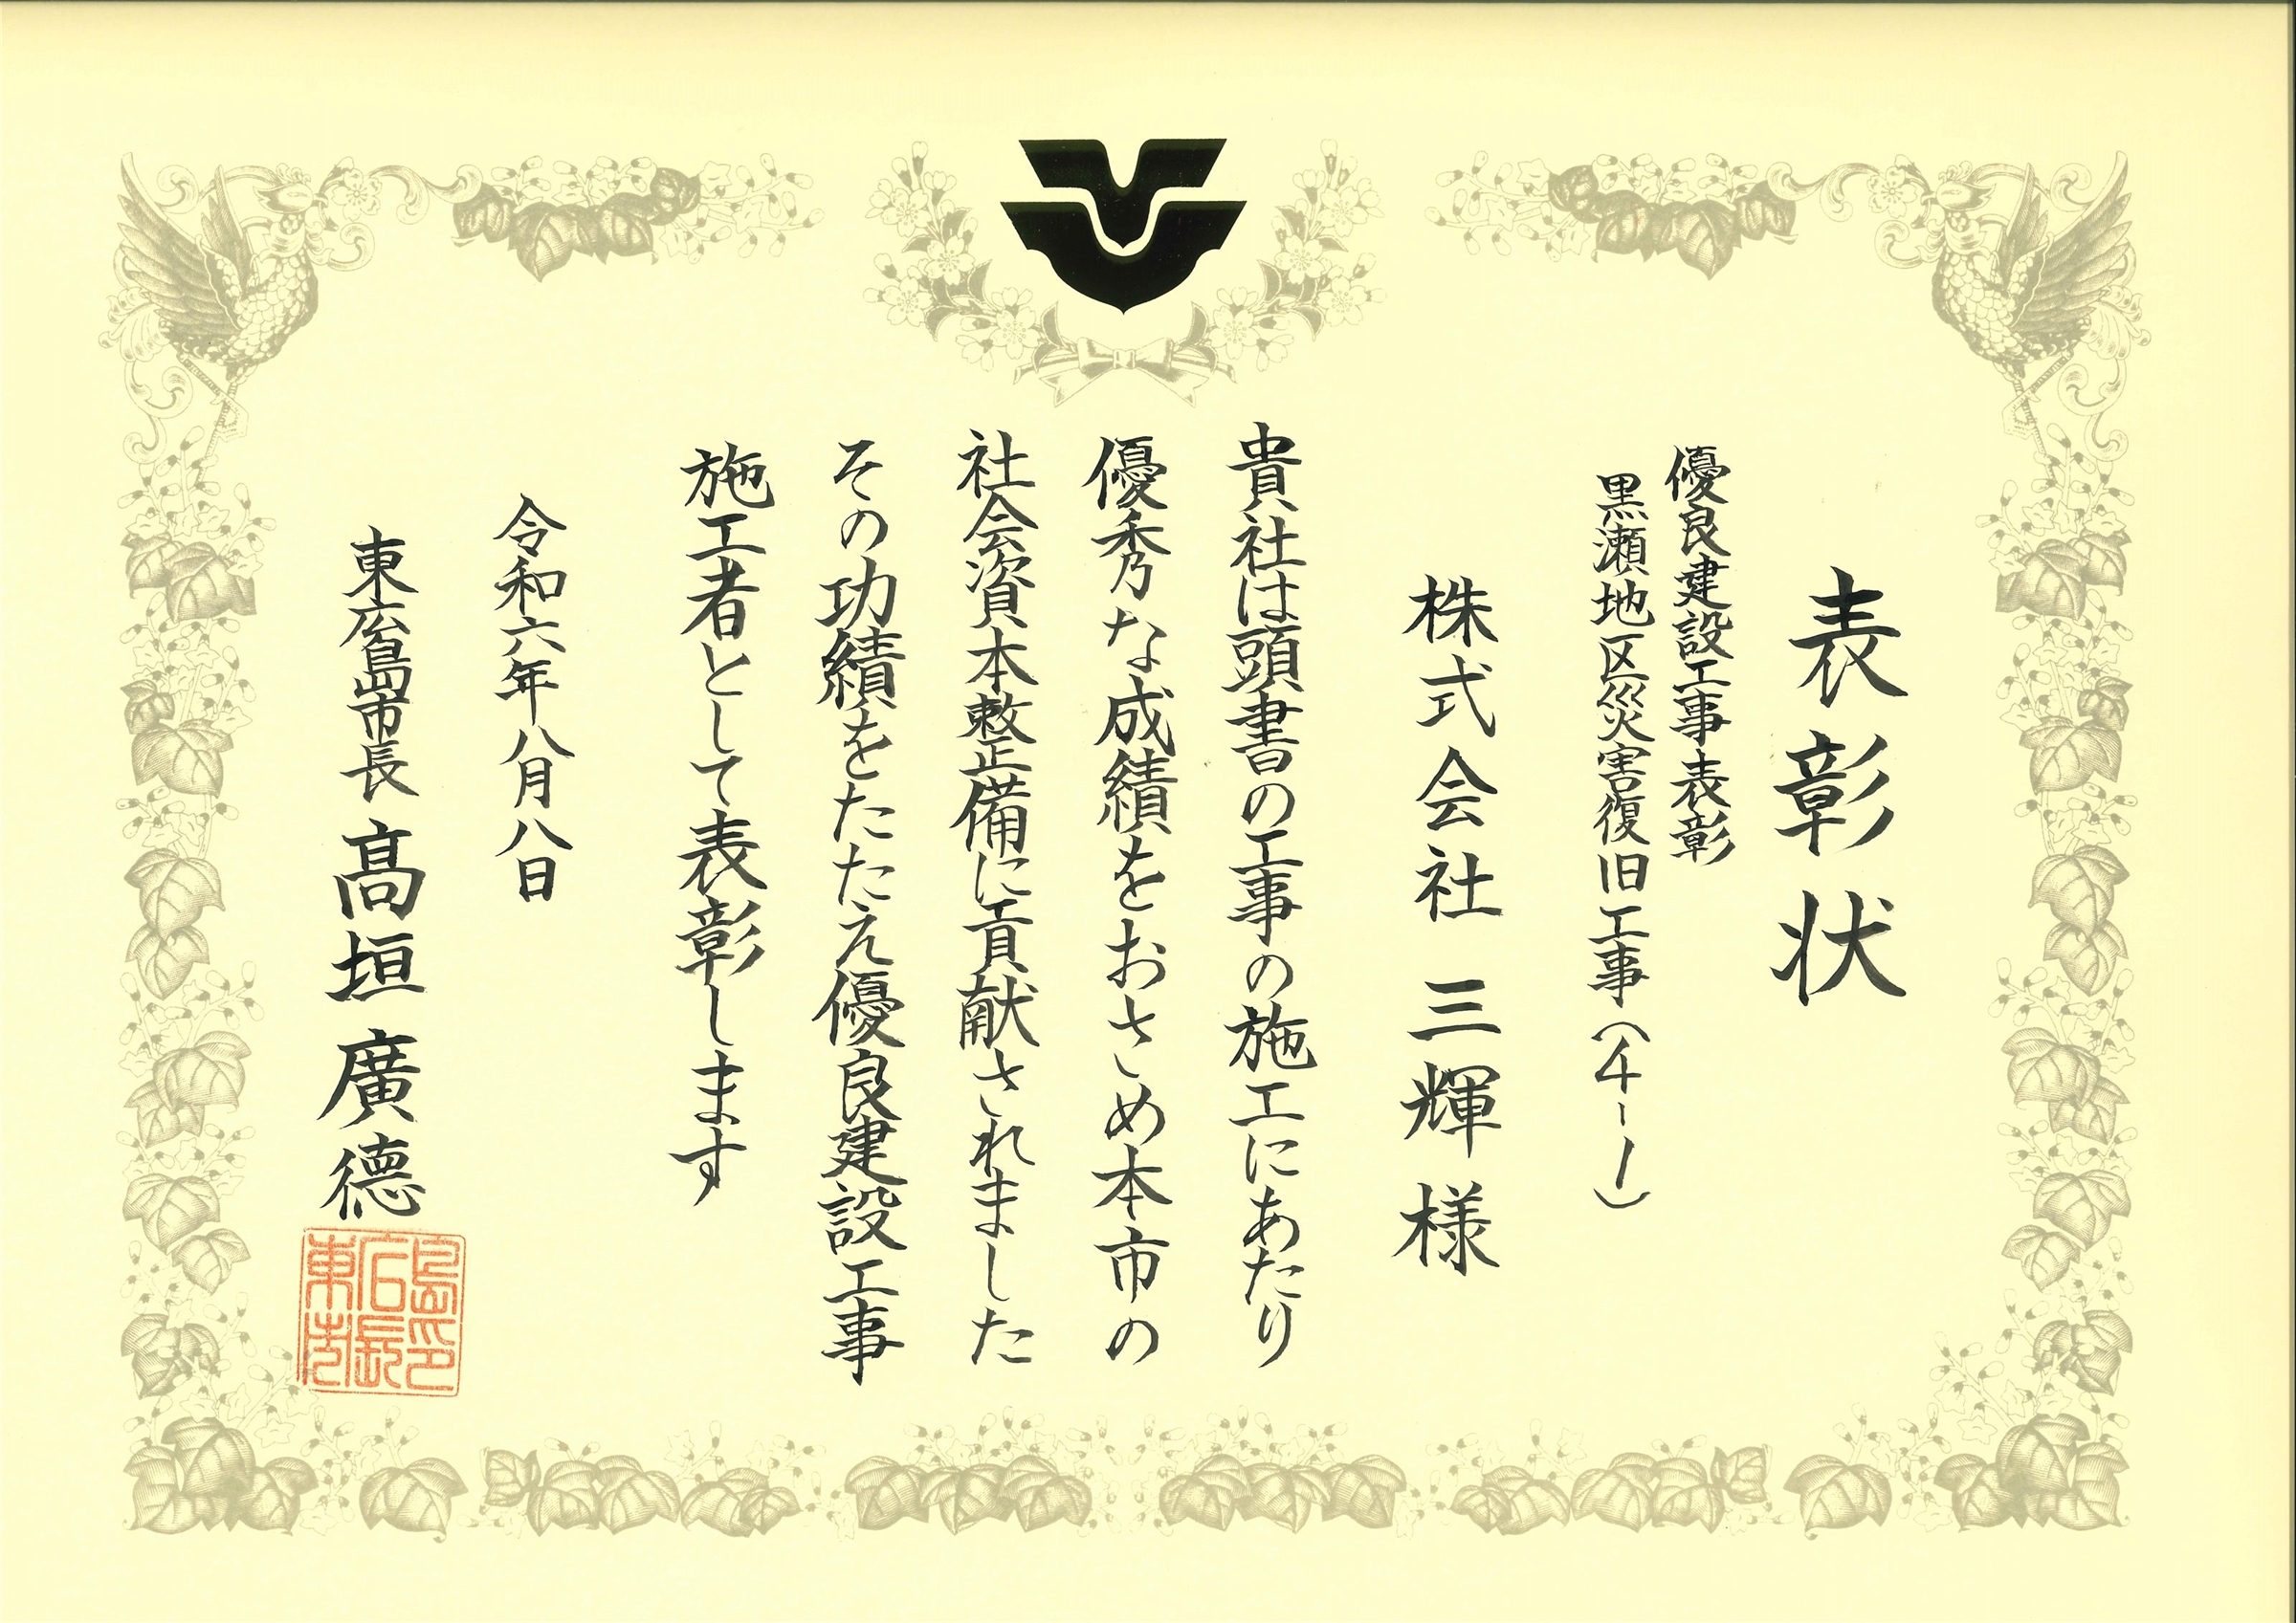 表彰状
優良建設工事表彰
黒瀬地区災害復旧工事(4-1)
株式会社 三輝 様
貴社は頭書の工事の施工にあたり
優秀な成績をおさめ本市の
社会資本整備に貢献されました
その功績をたたえ優良建設工事
施工者として表彰します
令和六年八月八日
東広島市長 髙垣廣德
東広島市長印